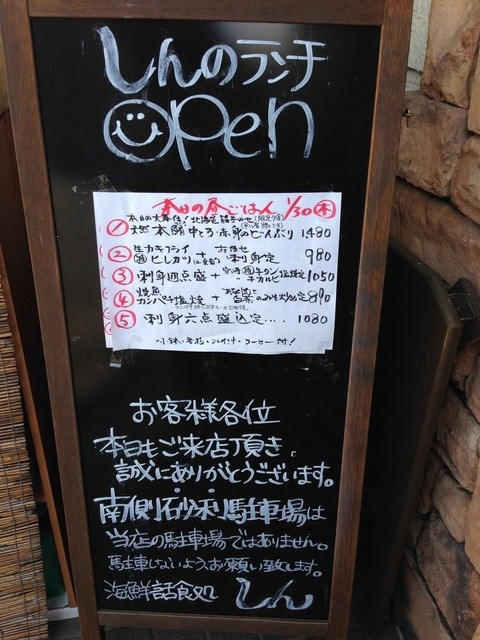 しんのランチ
Open
本日の昼ごはん 1/30 木
① 天然本鮪中とろ・赤身のどんぶり 1480
② 生カキフライ
ヒレカツ + お任せ刺身定 980
③ 刺身四点盛 + 牛タン塩焼定 1050
④ 焼魚
カンパチ塩焼 + 白菜のみそ炒め定 890
⑤ 刺身六点盛込定.... 1080
コーヒー付!
お客様各位
本日もご来店頂き、
誠にありがとうございます。
南側砂利駐車場は
当店の駐車場ではありません。
駐車しないよう、お願い致します。
海鮮話食処 しん